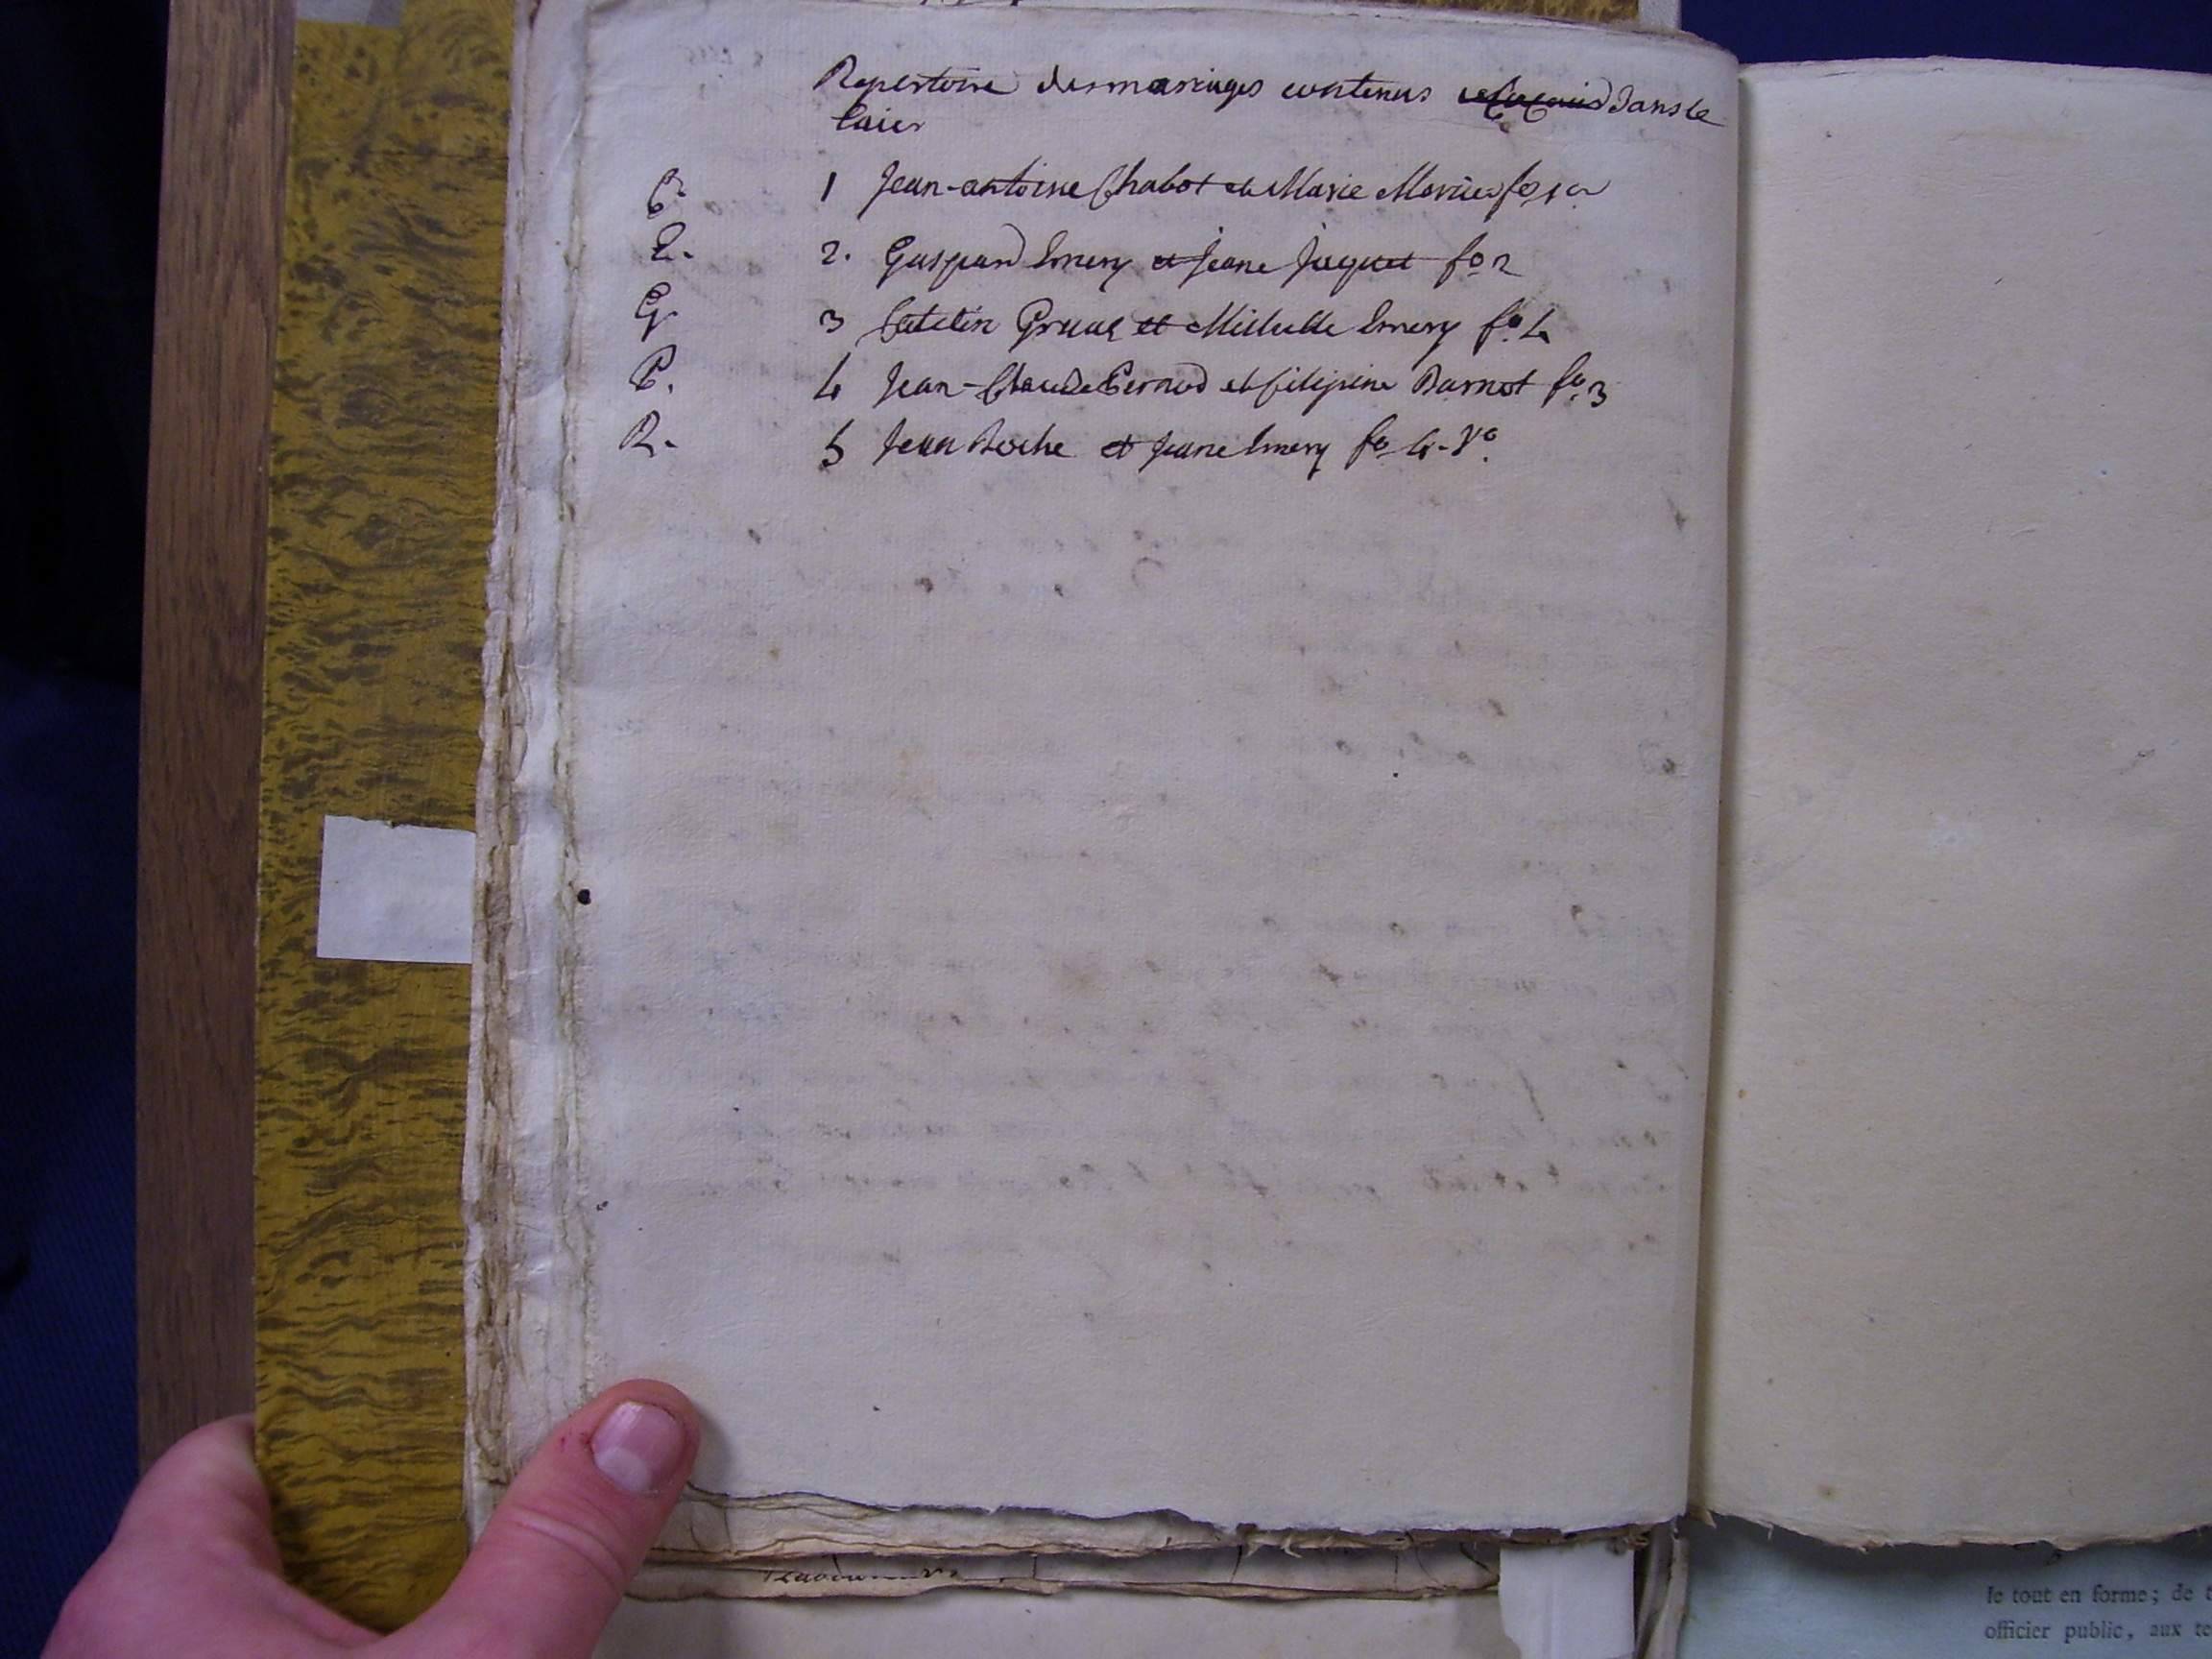 Repertoire des mariages contenus dans le
Caier
C. 1 Jean-antoine Chabot et Marie fo 1
E. 2. Gaspard Emery et Jeane Jaquet fo 2
G. 3 et Michelle Emery fo. 4
P. 4 Jean-Claude Pernod et filipine Darnot fo. 3
R. 5 Jean Roche et Jeane Emery fo 4. Vo.
le tout en forme; de
officier public, aux